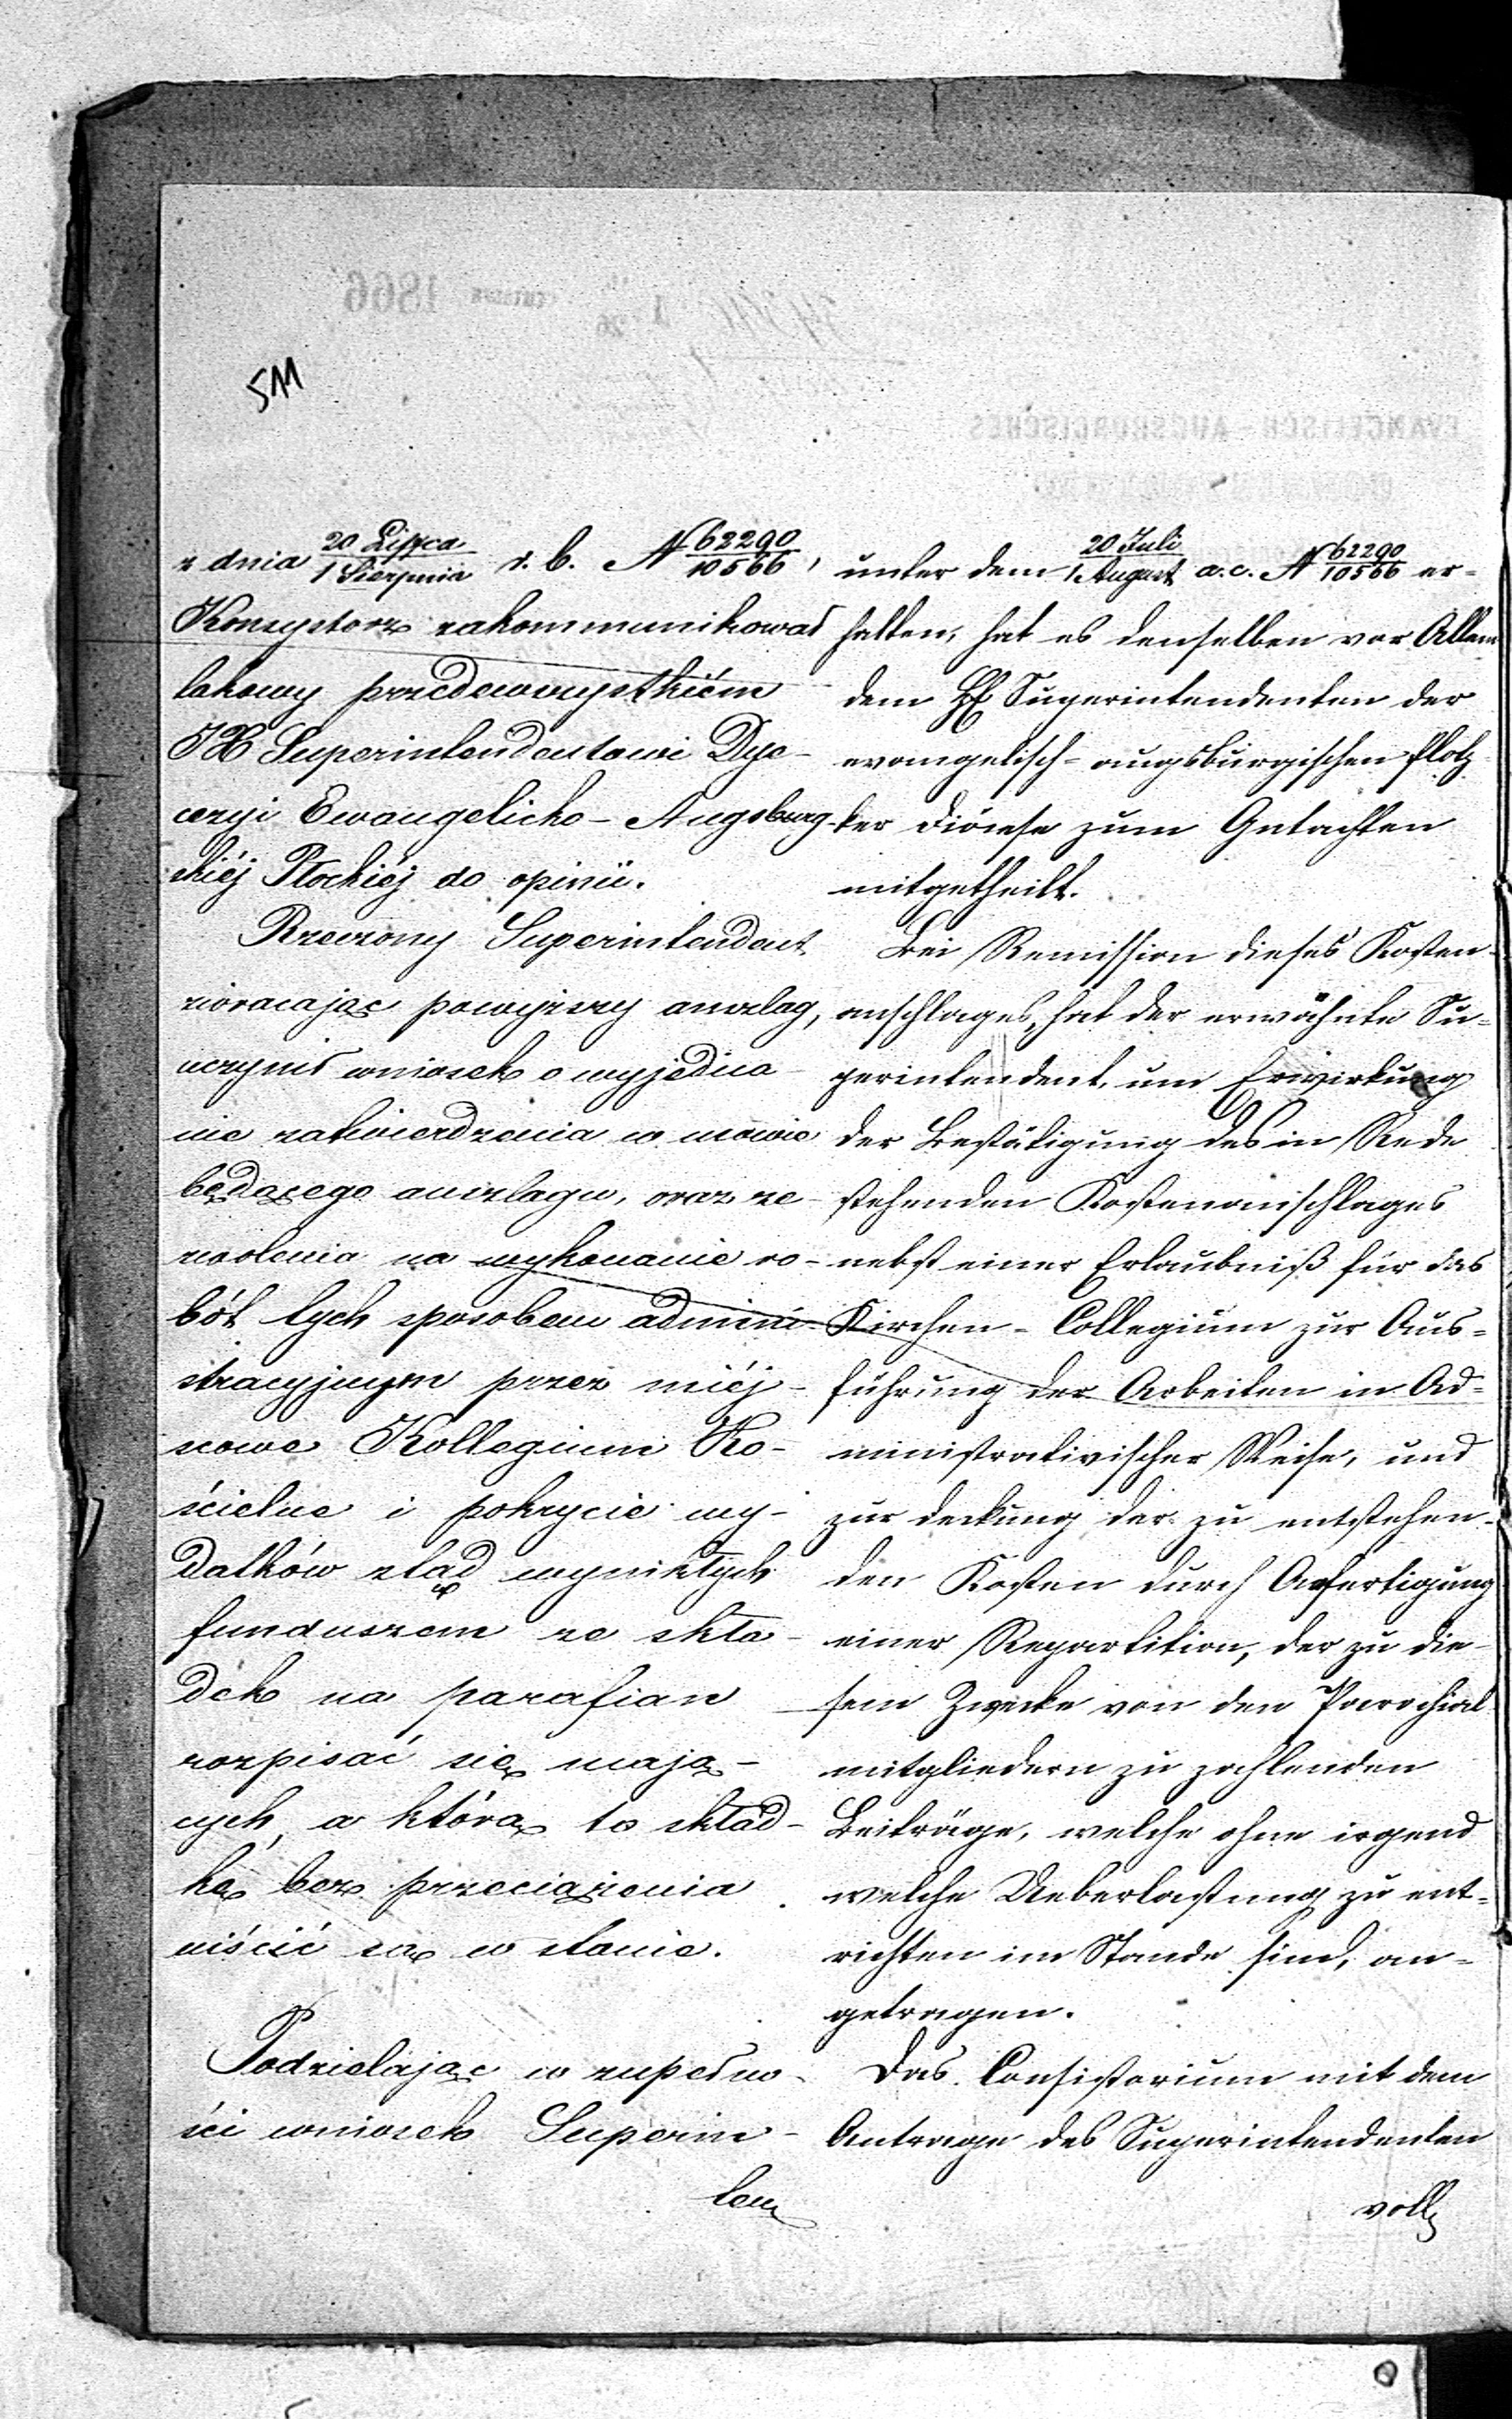 511
z dnia 20 Lipca/1 Sierpnia r. b. N 62290/10566,
Konsystorz zakommunikował
takowy przedewszystkiém
JX Superintendentowi Dye-
cezyi Ewangelicko-Augsburg-
skiéj Płockiéj do opinii.
Rzeczony Superintendent
zwracając powyższy anszlag,
uczynił wniosek o wyjedna-
nie zatwierdzenia w mowie
będącego anszlagu, oraz ze-
zwolenia na wykonanie ro-
bót tych sposobem admini-
stracyjnym przez miéj-
scowe Kollegium Ko-
ścielne i pokrycie wy-
datków ztąd wynikłych
funduszem ze skła-
dek na parafian
rozpisać się mają-
cych, a którą to skład-
kę bez przeciążenia
uiścić są w stanie.
Podzielając w zupełno-
ści wniosek Superin-
ten
unter dem 20 Juli/1 August a. c. N 62290/10566 er-
halten, hat es denselben vor Allem
dem H Superintendenten der
evangelisch-augsburgischen Plotz-
ker Diöcese zum Gutachten
mitgetheilt.
Bei Remission dieses Kosten-
anschlages, hat der erwähnte Su-
perintendent, um Erwirkung
der Bestätigung des in Rede
stehenden Kostenanschlages
nebst einer Erlaubniß für das
Kirchen-Collegium zur Aus-
führung der Arbeiten in Ad-
ministrativischer Weise, und
zur Deckung der zu entstehen-
den Kosten durch Anfertigung
einer Repartition, der zu die-
sem Zwecke von den Parochial-
mitgliedern zu zahlenden
Beiträge, welche ohne irgend
welche Ueberlastung zu ent-
richten im Stande sind, an-
getragen.
Das Consistorium mit dem
Antrage des Superintendenten
voll